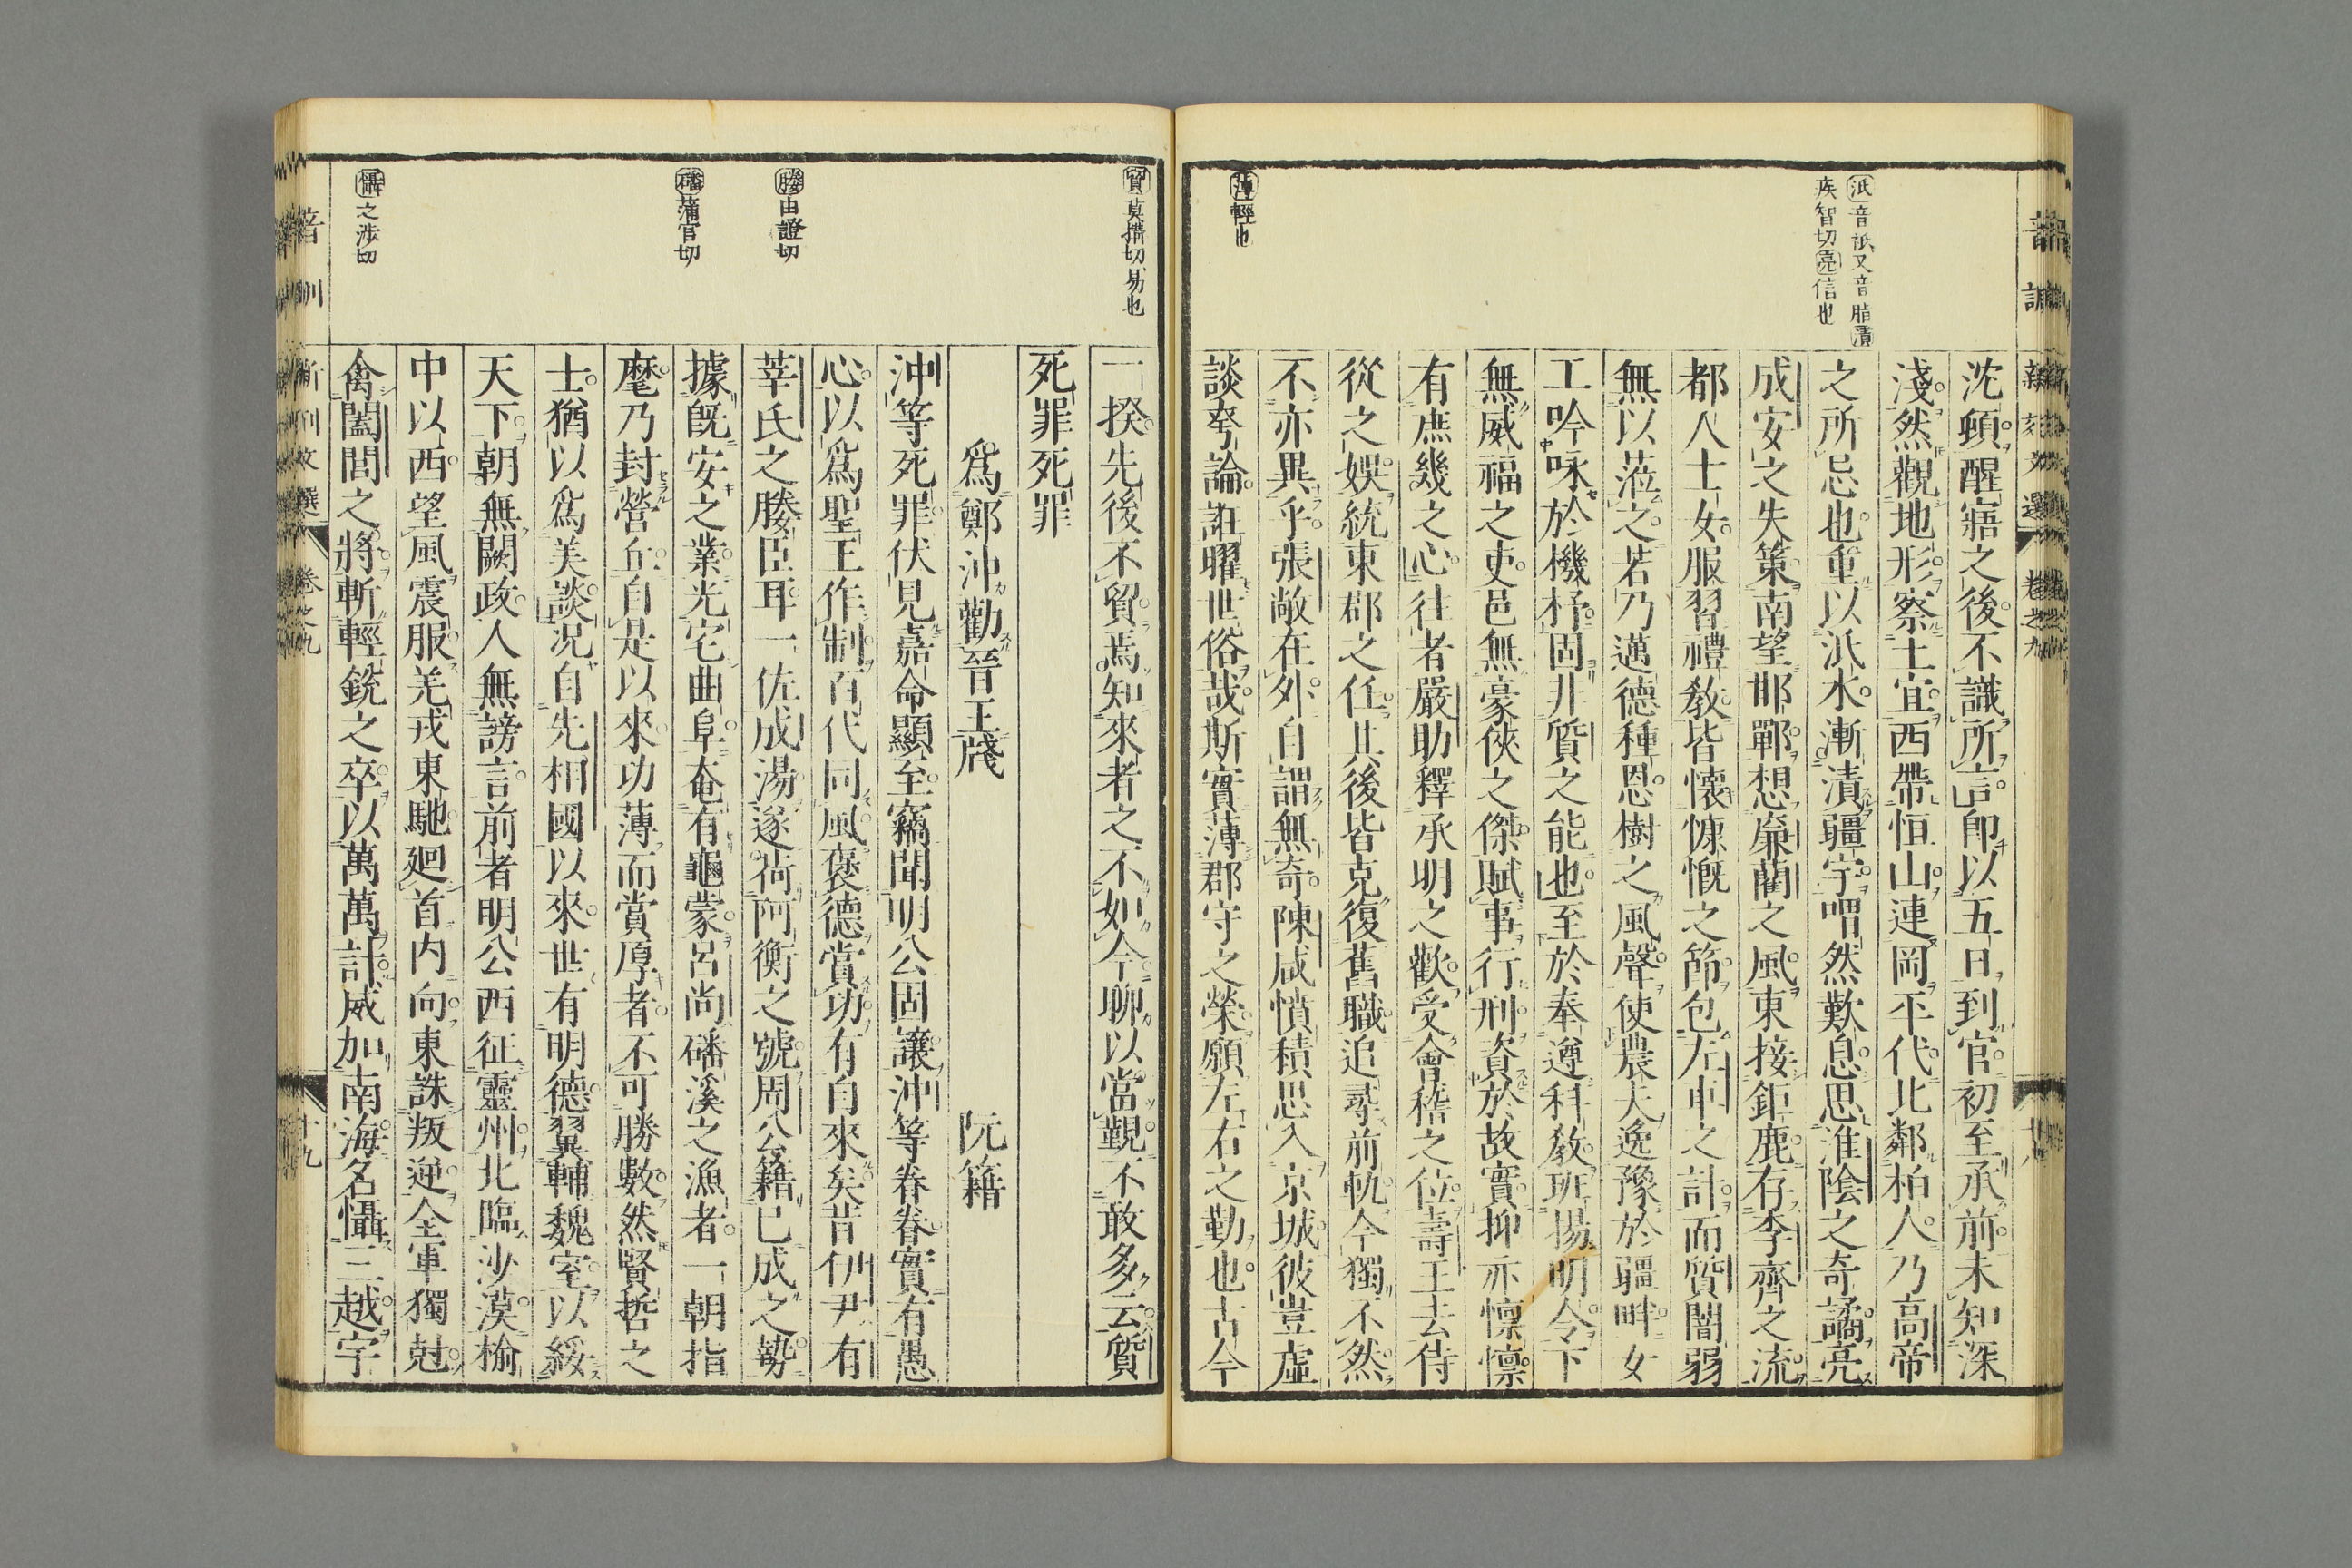 泜音祇又音脂漬
疾智切亮信也
薄輕也
沈頓醒寤之後不識所言即以五日到官初至承前未知深
淺然觀地形察土宜西帶恒山連岡平代北鄰柏人乃高帝
之所忌也重以泜水漸漬疆宇喟然歎息思淮陰之奇譎亮
成安之失策南望邯鄲想廉藺之風東接鉅鹿存李齊之流
都人士女服習禮教皆懷慷慨之節包左車之計而質闇弱
無以蒞之若乃邁德種恩樹之風聲使農夫逸豫於疆畔女
工吟咏於機杼固非質之能也至於奉遵科教班揚明令下
無威福之吏邑無豪俠之傑賦事行刑資於故實抑亦懍懍
有庶幾之心往者嚴助釋承明之歡受會稽之位壽王去侍
從之娛統東郡之任其後皆克復舊職追尋前軌今獨不然
不亦異乎張敞在外自謂無奇陳咸憤積思入京城彼豈虛
談夸論誑曜世俗哉斯實薄郡守之榮願左右之勤也古今
音訓 新刻文選 卷之九
貿莫搆切易也
媵由證切
磻蒲官切
懾之涉切
一揆先後不貿焉知來者之不如今聊以當覲不敢多云質
死罪死罪
爲鄭沖勸晉王牋 阮籍
沖等死罪伏見嘉命顯至竊聞明公固讓沖等眷眷實有愚
心以爲聖王作制百代同風褒德賞功有自來矣昔伊尹有
莘氏之媵臣耳一佐成湯遂荷阿衡之號周公籍已成之勢
據旣安之業光宅曲阜奄有龜蒙呂尚磻溪之漁者一朝指
麾乃封營丘自是以來功薄而賞厚者不可勝數然賢哲之
士猶以爲美談況自先相國以來世有明德翼輔魏室以綏
天下朝無闕政人無謗言前者明公西征靈州北臨沙漠榆
中以西望風震服羌戎東馳廻首内向東誅叛逆全軍獨尅
禽闔閭之將斬輕銳之卒以萬萬計威加南海名懾三越宇
音訓 新刻文選 卷之九 十九